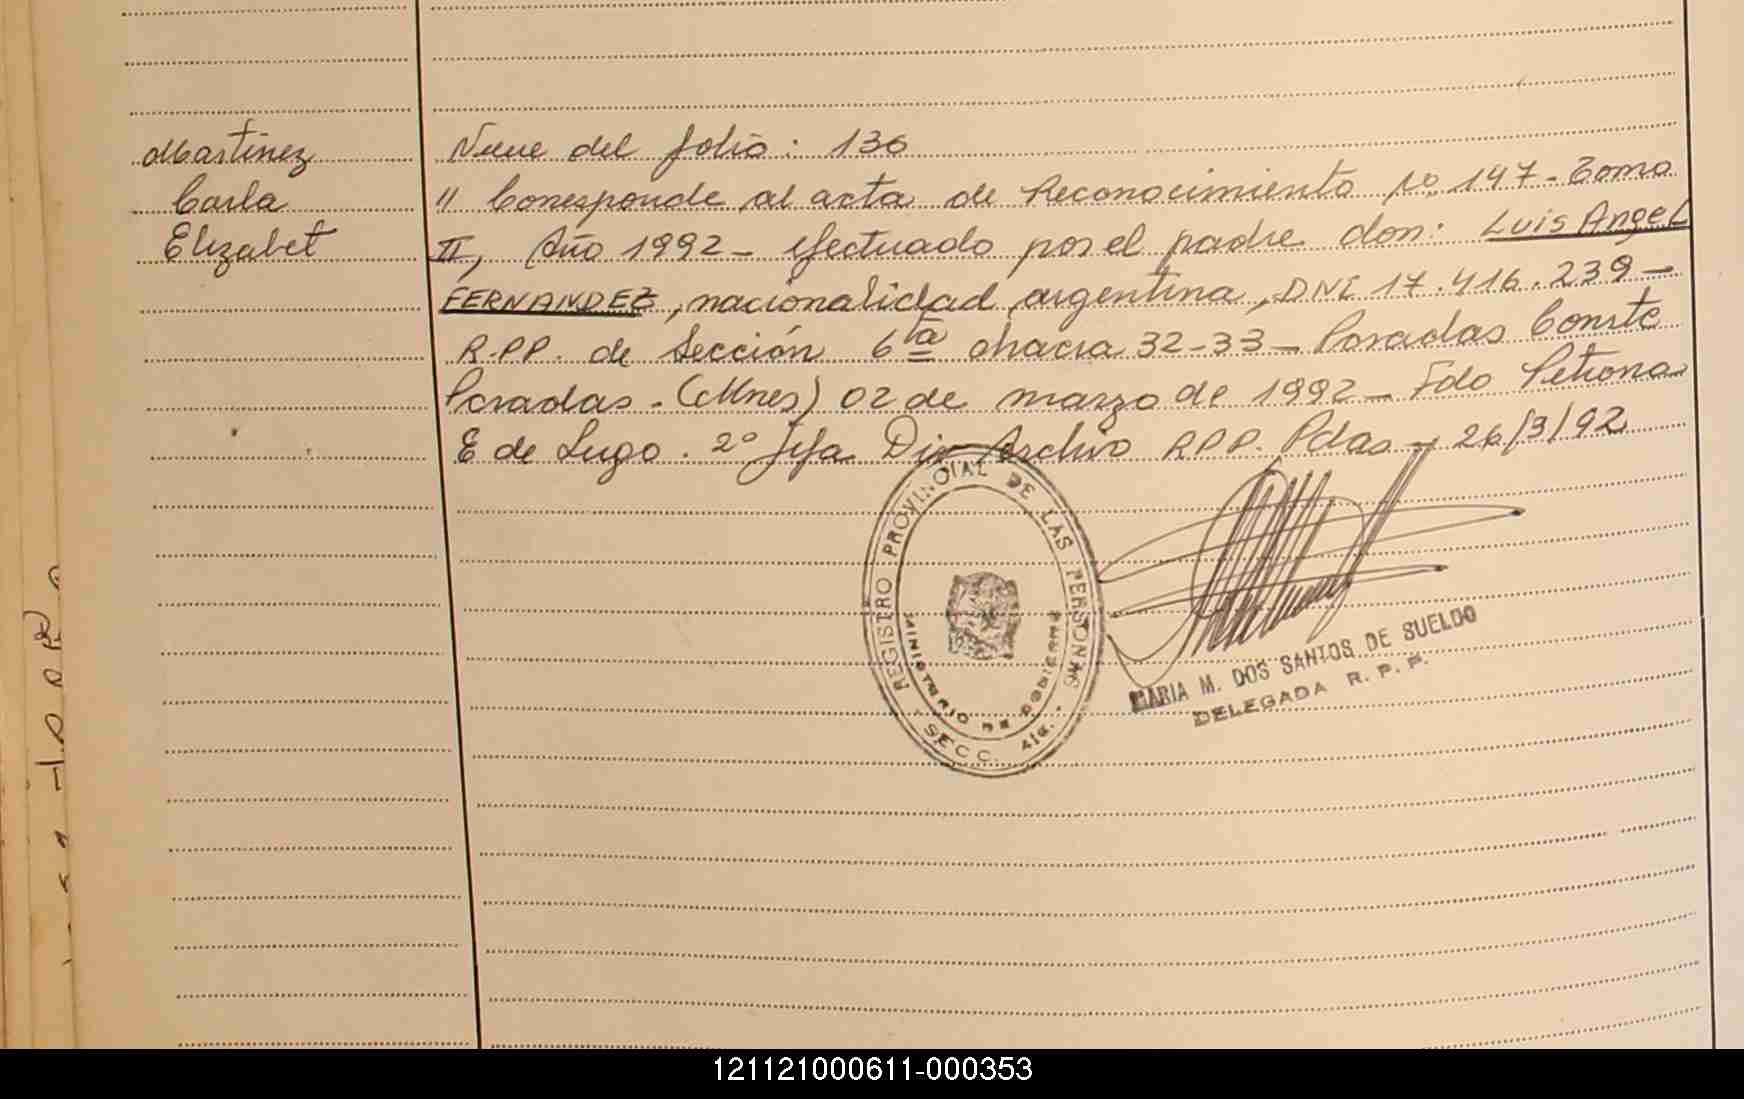 Martinez
Carla
Elizabet
Viene del folio: 136
" Corresponde al acta de Reconocimiento No 147 - Tomo
II, Año 1992 - efectuado por el padre don: Luis Angel
FERNANDEZ, nacionalidad argentina, DNI 17.416.239 -
R.P.P. de Sección 6ta chacra 32-33 - Posadas Conste
Posadas - (Mnes) 02 de marzo de 1992 - Fdo Petrona
E de Lugo. 2° Jefa Div Archivo R.P.P. Pdas - 26/3/92
REGISTRO PROVINCIAL DE LAS PERSONAS
MINISTERIO DE GOBIERNO
SECC. 4ta.
MARIA M. DOS SANTOS DE SUELDO
DELEGADA R. P. P.
121121000611-000353